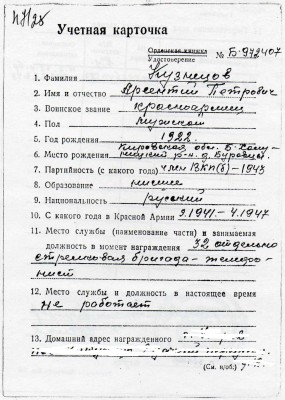 Учетная карточка
Орденская книжка
Удостоверение № Б-972407
1. Фамилия Кузнецов
2. Имя и отчество Арсентий Петрович
3. Воинское звание красноармеец
4. Пол мужской
5. Год рождения 1922.
Кировская обл. Б. Холу-
6. Место рождения ницкий р-н. д.
7. Партийность (с какого года) член ВКП(б)-1943
8. Образование низшее
9. Национальность русский
10. С какого года в Красной Армии 9.1941 - 4.1947
11. Место службы (наименование части) и занимаемая
должность в момент награждения 32 отдельно
стрелковая бригада -
нист
12. Место службы и должность в настоящее время
не работает
13. Домашний адрес награжденного
(См. н/об.)